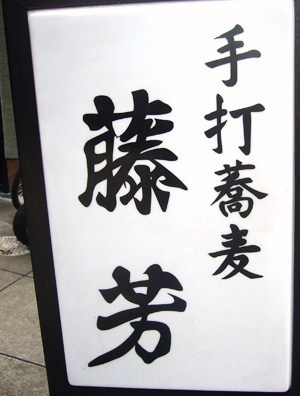 手打蕎麦
藤芳